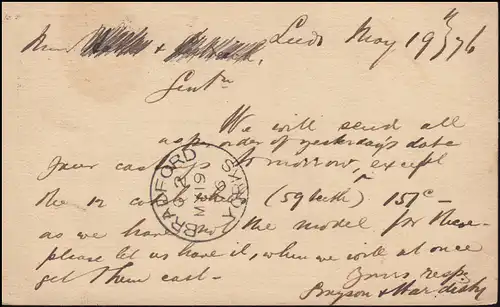 Leeds May 19th/76
Gentn
We will send all
as per order of yesterdays date
your castings tomorrow, except
the 12 cast wheels (59 teeth) 151c -
as we have not the model for these
please let us have it, when we will at once
get them cast -
Yours respy
Bryson &
BRADFORD YORKS
MY 19
76